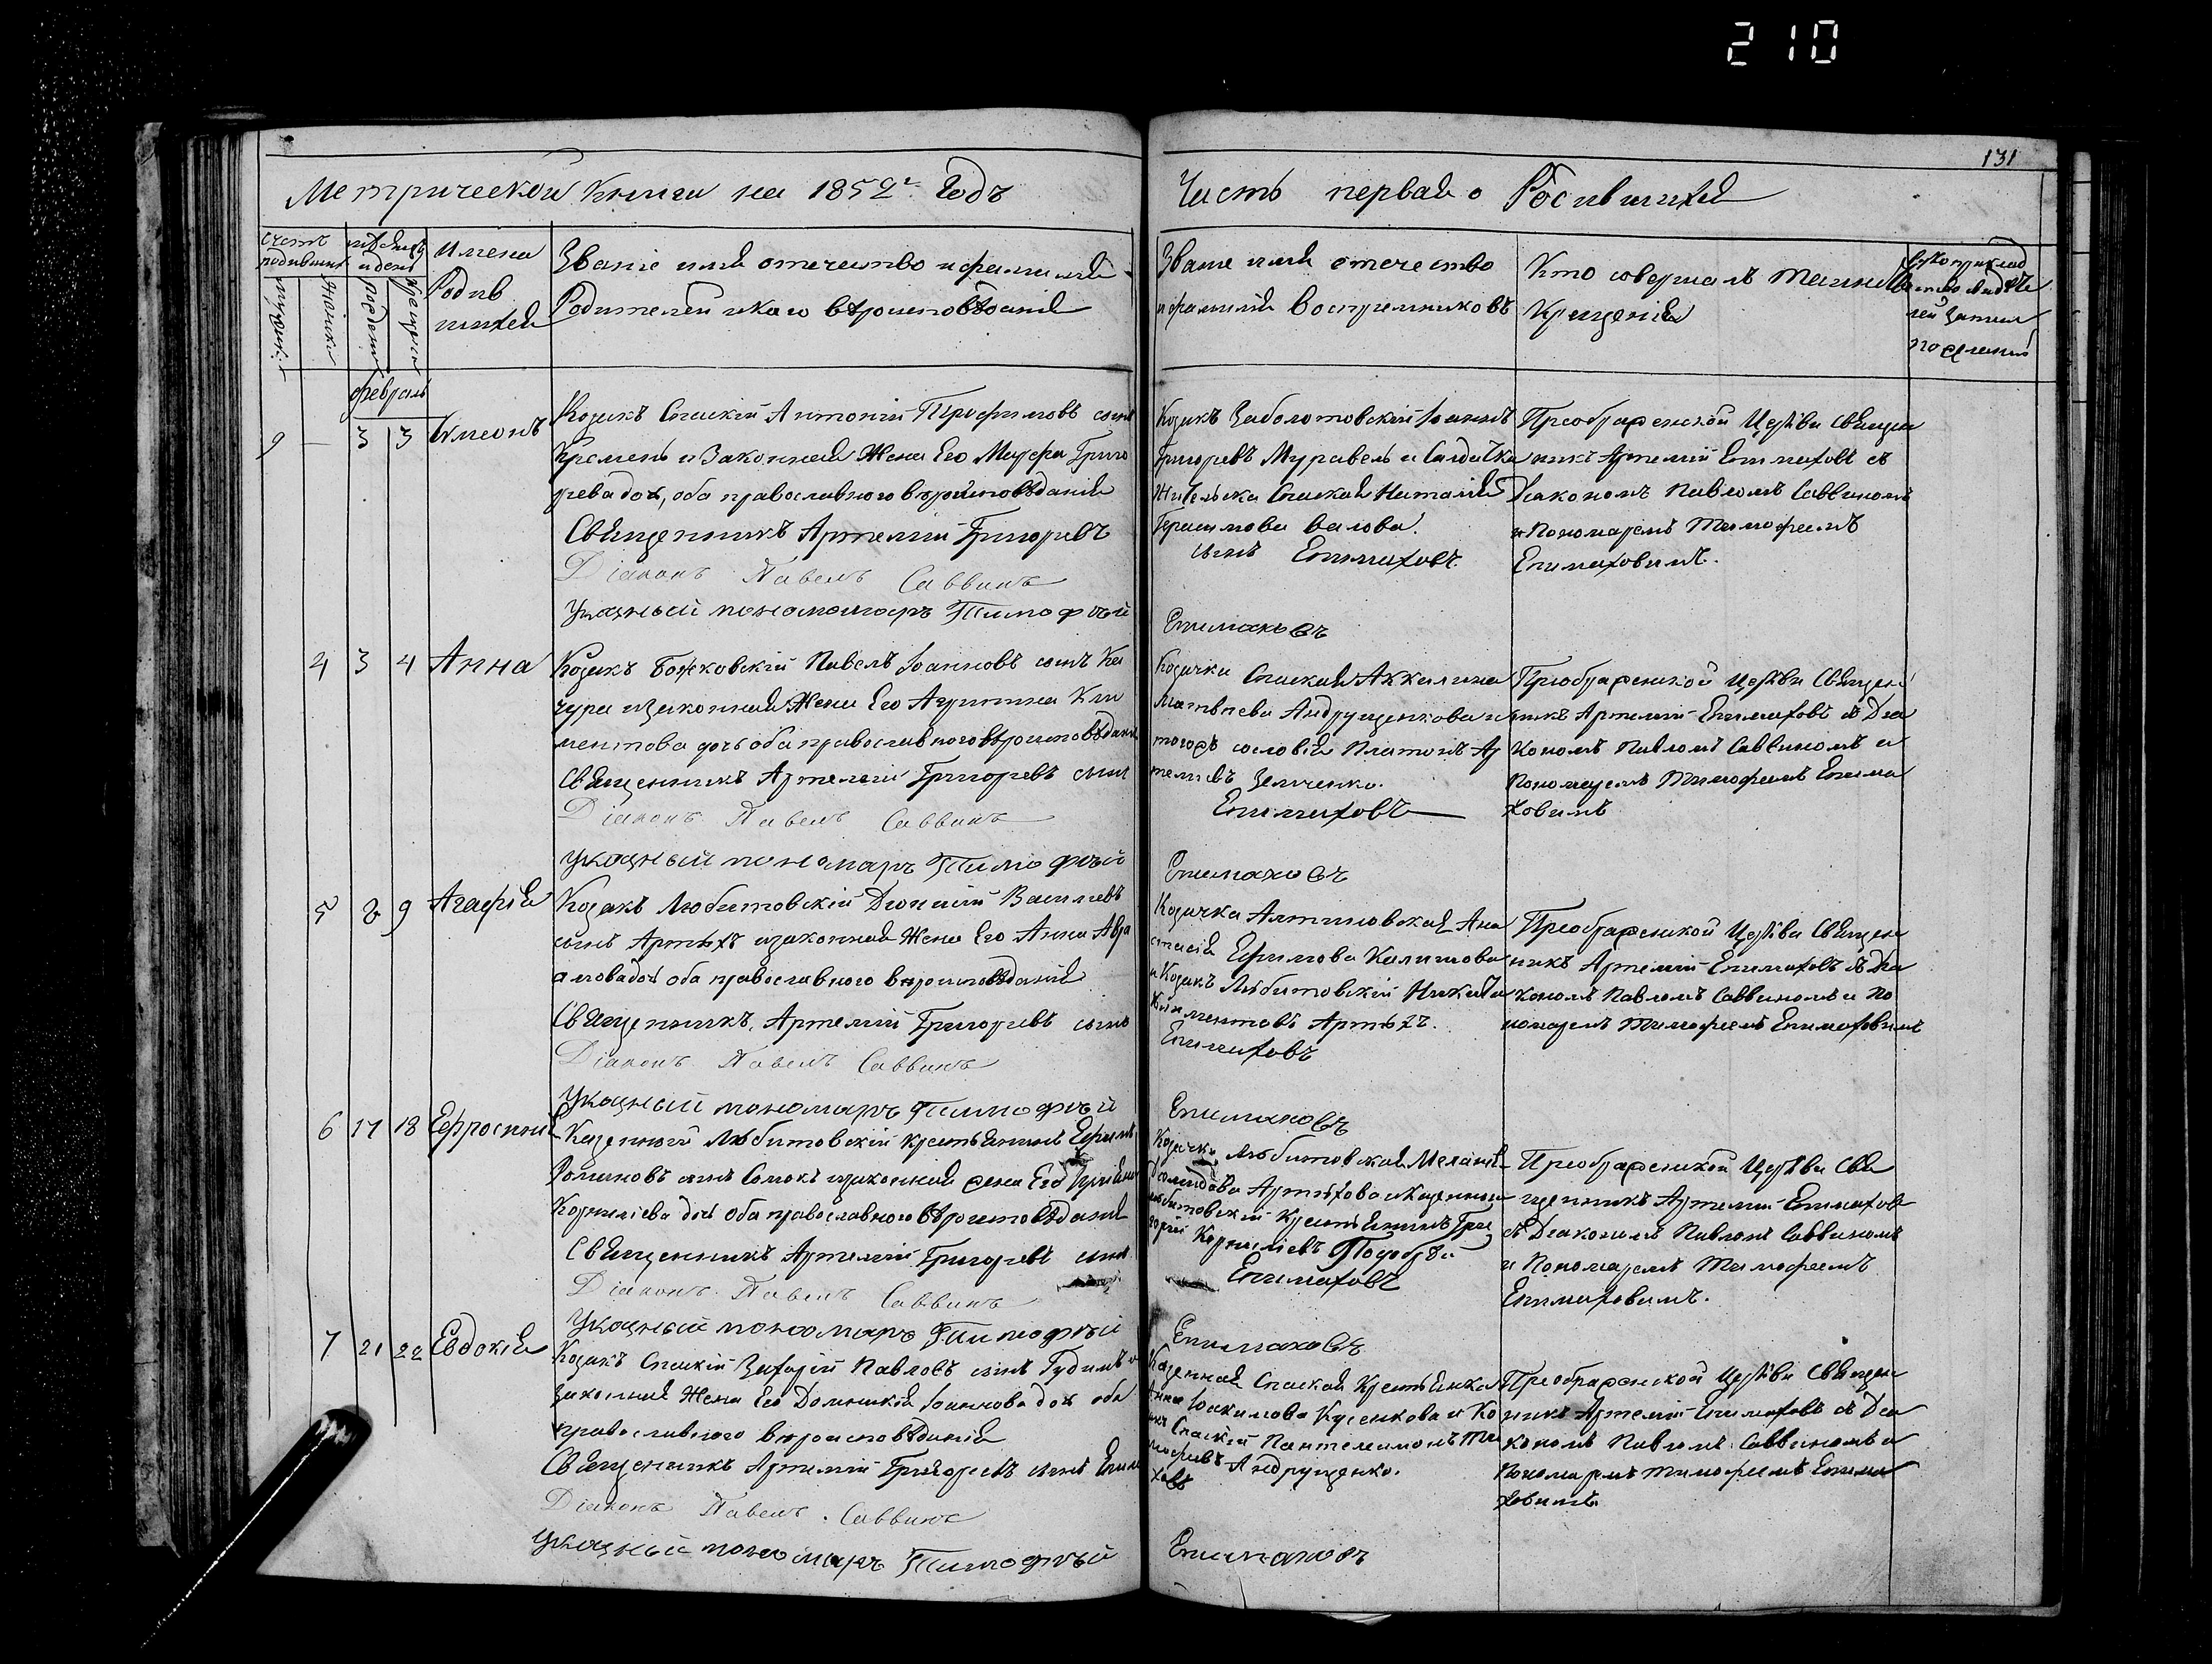 210
131
Метрической Книги на 1852й Годъ
Часть первая о Родившихся
Счетъ родившихся
мужеск:
Женски
мѣсяцъ и день
рожденія
крещенія
Имена
Родив
шихся
Званіе имя отечество и фамилія
Родителей и каго вѣроисповѣданія
Званіе имя отечество
и фамилія Воспремниковъ
Кто совершалъ таинство
Крещенія
Рукоприклад
ство свидѣте
лей записи
по желанію
февраль
9 — 3 3 Симеонъ
Козакъ Спаскій Антоній Трофимовъ сынъ
Кремень и Законная Жена Его Марфа Григо
рева доч, оба православного вѣроисповѣданія
Священникъ Артемій Григоревъ
Діаконъ Павелъ Саввинъ
Указный пономаръ Тимофѣй
Козакъ Заболотовскій Іоаннъ
Григоревъ Муравель и Салдатка
Жителька Спаская Наталія
Герасимова
сынъ Епимаховъ.
Епимаховъ
Преображенской Церкви Священ
никъ Артемій Епимаховъ съ
Діакономъ Павломъ Саввиномъ
и Пономаремъ Тимофеемъ
Епимаховимъ.
4 3 4 Анна
Козакъ Божковскій Павелъ Іоанновъ сынъ Ка
чура изаконная Жена Его Агриппина Кли
ментова дочь оба православного вѣроисповѣданія
Священникъ Артемій Григоревъ сынъ
Діаконъ Павелъ Саввинъ
Указный пономаръ Тимофѣй
Козачка Спаская Аккилина
Матвѣева Андрущенкова и
тогожъ сословія Платонъ Ар
темиевъ Зенченко.
Епимаховъ
Епимаховъ
Преображенской Церкви Священ
никъ Артемій Епимаховъ съ Діа
кономъ Павломъ Саввиномъ и
Пономаремъ Тимофеемъ Епима
ховимъ
5 8 9 Агафія
Козакъ Любитовскій Діонисій Василиевъ
сынъ Артюхъ изаконная Жена Его Анна Авра
амовадоч оба православного вѣроисповѣданія
Священникъ Артемій Григоревъ сынъ
Діаконъ Павелъ Саввинъ
Указный пономаръ Тимофѣй
Козачка Алтиновская Ана
стасія Ефимова Калишова
и Козакъ Любитовскій Никита
Климентовъ Артюхъ.
Епимаховъ
Епимаховъ
Преображенской Церкви Священ
никъ Артемій Епимаховъ съ Діа
кономъ Павломъ Саввиномъ и По
номаремъ Тимофеемъ Епимаховимъ
6 17 18 Ефросинія
Казенной Любитовскій крестьянинъ Ефимъ
Романовъ сынъ Сомокъ изаконная жена Его
Корнилиева доч оба православного вѣроисповѣданія
Священникъ Артемій Григоревъ сынъ
Діаконъ Павелъ Саввинъ
Указный пономаръ Тимофѣй
Козачка Любитовская Меланія
Артюхова и Казенной
Любитовскій Крестьянинъ Гри
горій Корнилиевъ
Епимаховъ
Епимаховъ
Преображенской Церкви Свя
щенникъ Артемій Епимахов
съ Діакономъ Павломъ Саввиномъ
и Пономаремъ Тимофеемъ
Епимаховимъ.
7 21 22 Евдокія
Козакъ Спаскій Захарій Павловъ сынъ Гудимъ и
законная Жена Его Домникія Іоаннова доч оба
православного вѣроисповѣданія
Священникъ Артемій Григоревъ сынъ Епима
Діаконъ Павелъ Саввинъ
Указный пономаръ Тимофѣй
Казенная Спаская Крестьянка
Анна Іоакимова Кусенкова и Ко
закъ Спаскій Пантелимонъ Ти
мофеевъ Андрущенко.
ховъ
Епимаховъ
Преображенской Церкви Священ
никъ Артемій Епимаховъ съ Діа
кономъ Павломъ Саввиномъ и
Пономаремъ Тимофеемъ Епима
ховимъ